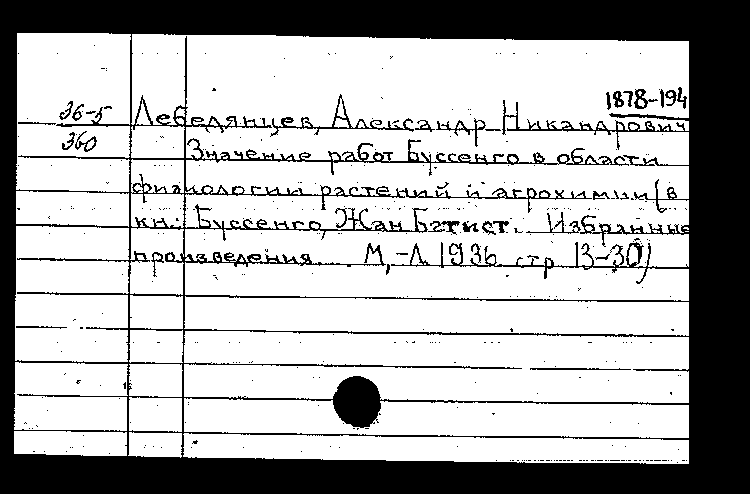 1878-194
36-5
360
Лебедянцев, Александр Никандрович
Значение работ Буссенго в области
физиологии растений и агрохимии (в
кн.: Буссенго, Жан Батист. Избранные
произведения. М,-Л. 1936 стр 13-30)